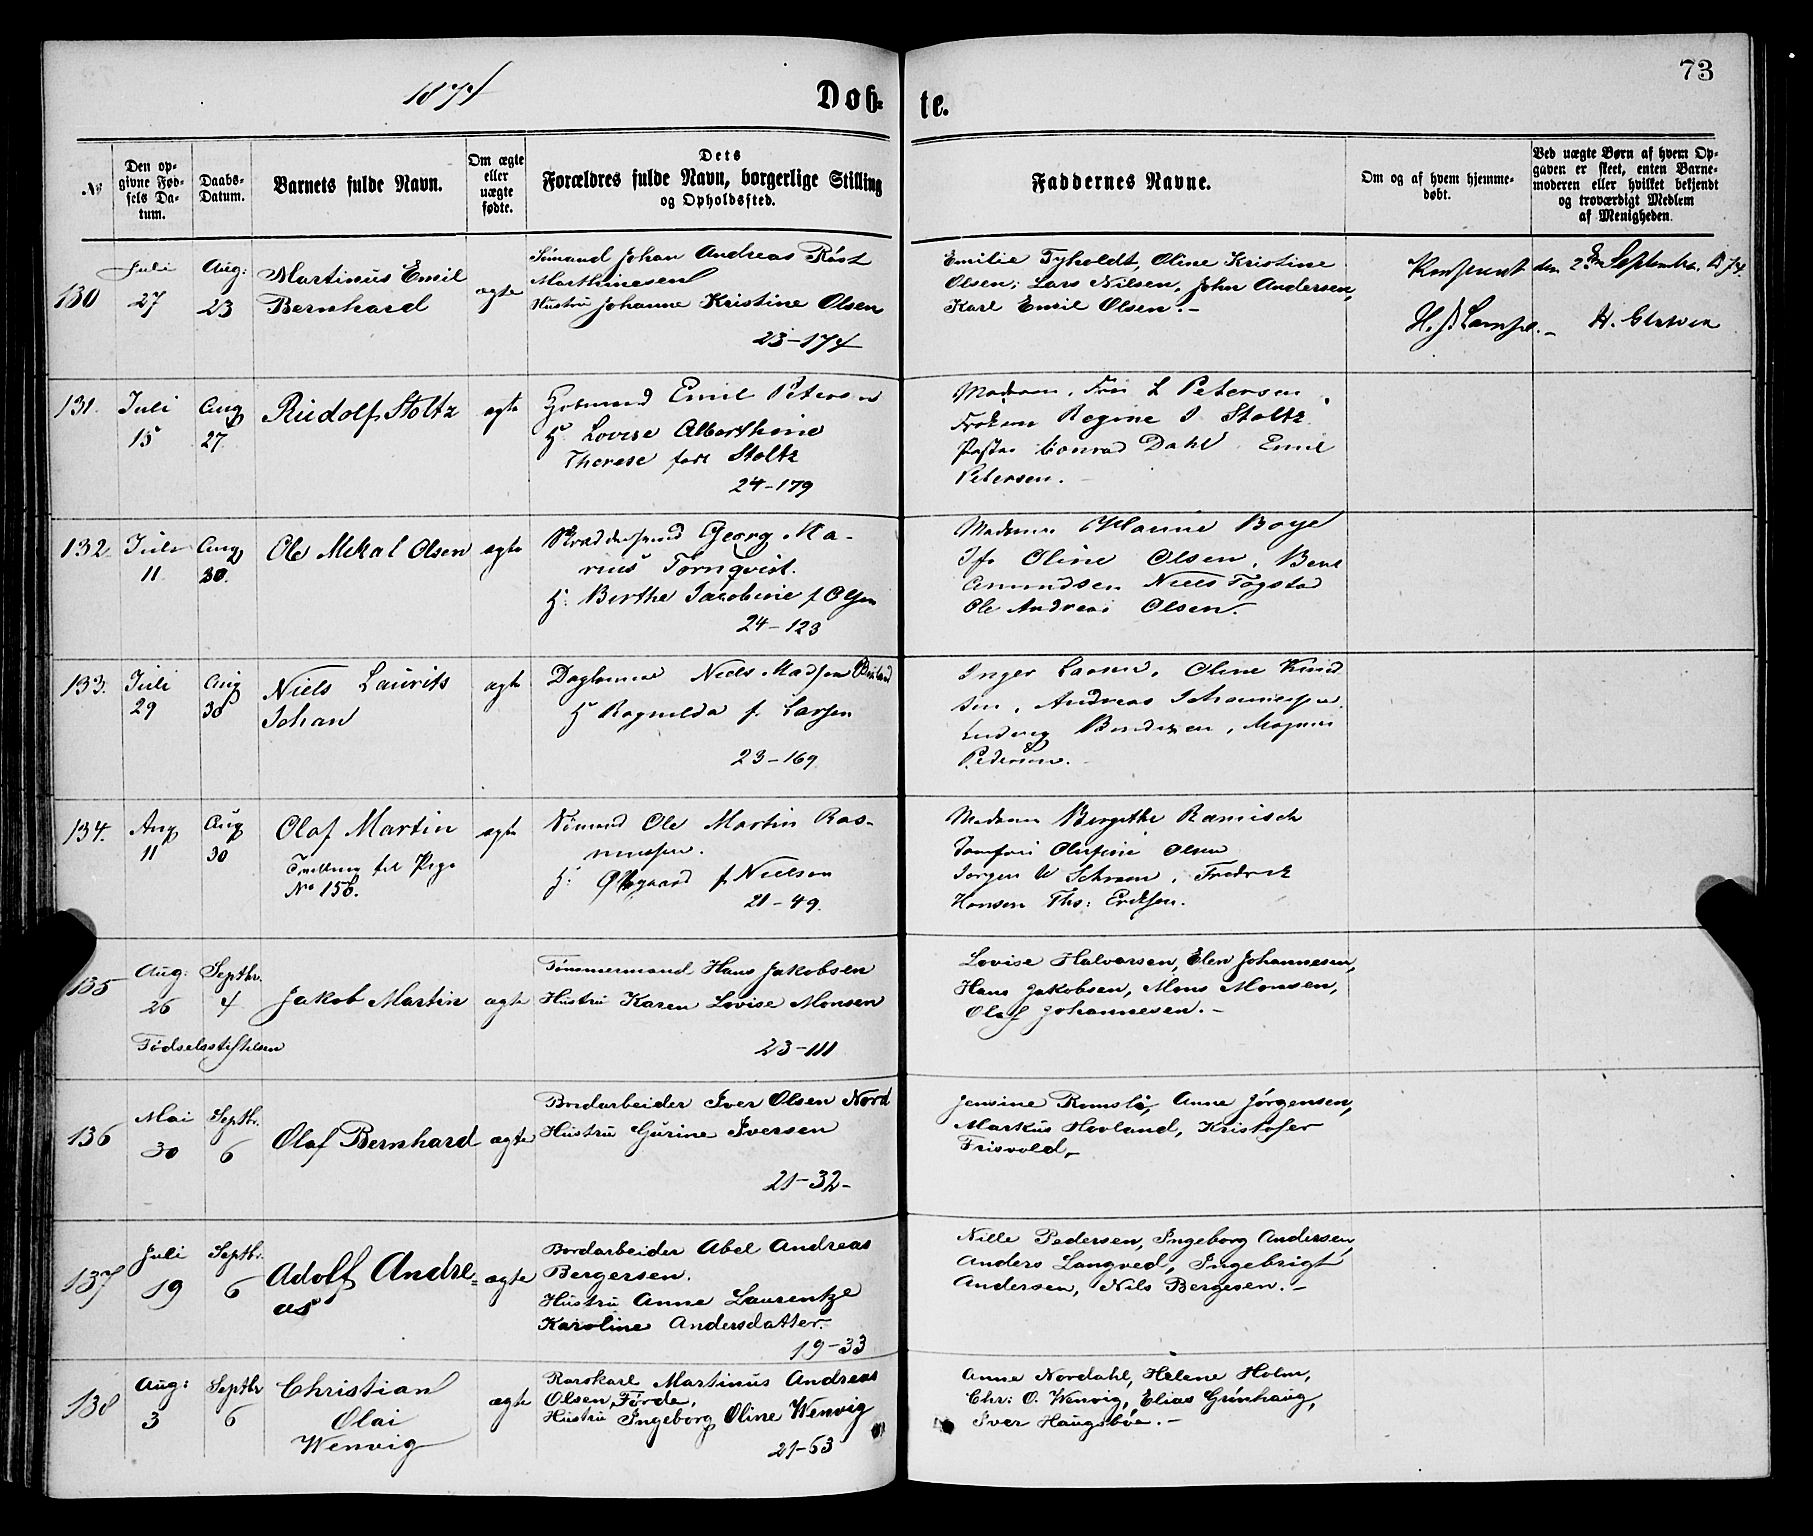 73
1874
Døb-
te.
No
Den op-
givne Fød-
sels Da-
tum.
Daabs-
Datum.
Barnets fulde Navn.
Om ægte
eller
uægte
fødte.
Dets
Forældres fulde Navn, borgerlige Stilling
og Opholdssted.
Faddernes Navne.
Om og af hvem hjemme-
døbt.
Ved uægte Børn af hvem Op-
gaven er skeet, enten Barne-
moderen eller hvilket bekjendt
og troværdigt Medlem
af Menigheden.
130
Juli
27
Aug:
23
Martinus Emil
Bernhard
ægte
Sømand Johan Andreas Røst
Marthinesen
Hustru Johanne Kristine Olsen
23-174
Emilie Tyholdt, Oline Kristine
Olsen; Lars Nilsen, John Andersen,
Karl Emil Olsen.-
den 2den Septembr. 1874.
131.
Juli
15
Aug
27.
Rudolf Stoltz
ægte
Emil Petersen
H. Lovise Alberthine
Therese født Stoltz
24-179
Madam L Petersen
Frøken Regine Stoltz.
Conrad Dahl. Emil
Petersen.-
132.
Juli
11.
Aug
30.
Ole Mikal Olsen
ægte
Georg Ma-
rius Tornqvist.
H: Berthe Jacobine f Olsen
24-123
Madam Hanne Boye
Jfr Oline Olsen, Bent
Amundsen Niels Fogstad
Ole Andreas Olsen.-
133.
Juli
29
Aug
30
Niels Laurits
Johan
ægte
Niels Madsen
H Ragnilda f. Larsen
23-169
Inger Larsen, Oline Knud
sen, Andreas Johannessen.
Ludvig Bendixen, Magnus
Pedersen.-
134.
Aug
11
Aug
30
Olaf Martin
Tvilling til Pige
No 156.
ægte
Sømand Ole Martin Ras-
mussen.
H: f. Nielsen
21-49.
Madam Bergithe Ramisch
Jomfru Olufine Olsen
Jørgen W Schram, Fredrik
Hansen Ths: Eriksen.
135
Aug:
26
Septbr.
4
Fødselsstiftelsen
Jakob Martin
ægte
Tømmermand Hans Jakobsen
Hustru Karen Lovise Monsen
23-111
Lovise Halvorsen, Elen Johannesen,
Hans Jakobsen, Mons Monsen,
Olaf Johannesen.-
136
Mai
30
Septbr.
6
Olaf Bernhard
ægte
Bordarbeider Iver Olsen Nord
Hustru Gurine Iversen
21-32-
Jensine Romslo, Anne Jørgensen,
Markus Hovland, Kristofer
Frisvold.-
137
Juli
19
Septbr.
6
Adolf Andre-
as
ægte
Bordarbeider Abel Andreas
Bergersen.
Hustru Anne Laurentze
Karoline Andersdatter.-
19-33
Nille Pedersen, Ingeborg Andersen,
Anders Langved, Ingebrigt
Andersen, Nils Bergesen.-
138
Aug:
3
Septbr
6
Christian
Olai
Wenvig
ægte
Rorskarl Martinus Andreas
Olsen Førde,
Hustru Ingeborg Oline Wenvig
21-53
Anne Nordahl, Helene Holm,
Chr: O. Wenvig, Elias Grønhaug,
Iver Haugsbøe.-